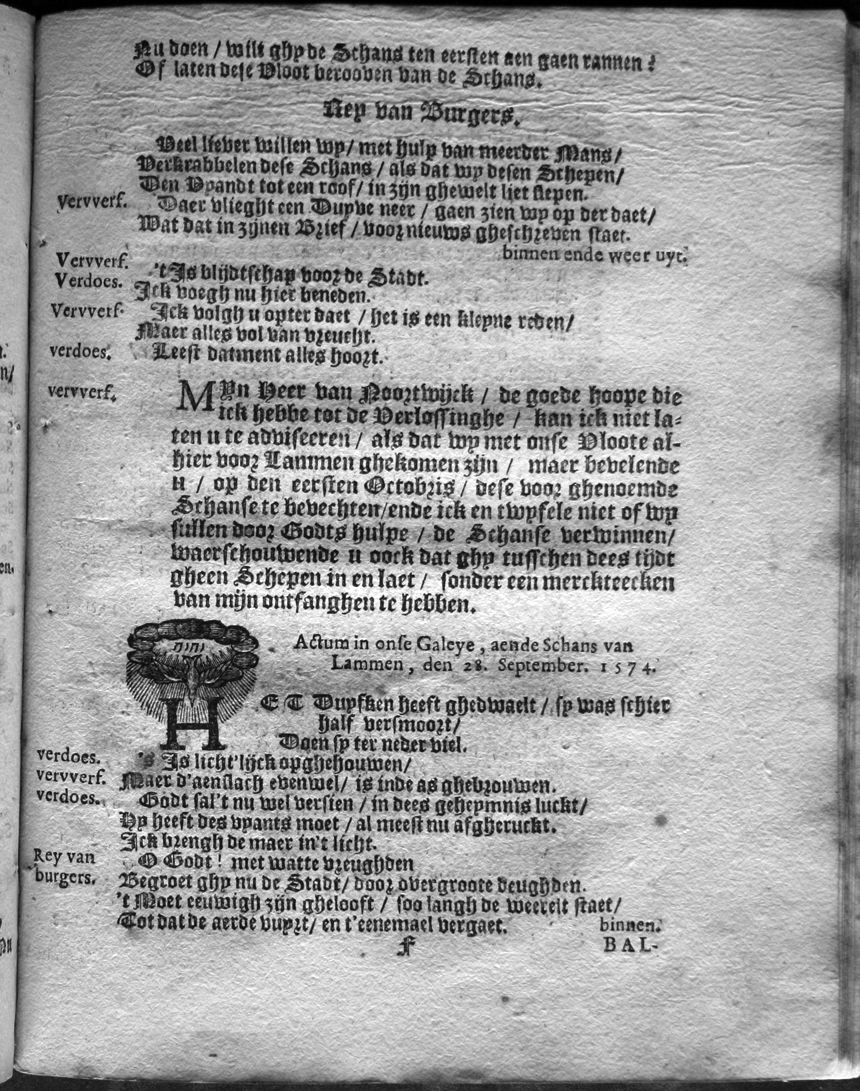 Nu doen / wilt ghy de Schans ten eersten aen gaen rannen?
Of laten dese Vloot berooven van de Schans.
Rey van Burgers.
Veel liever willen wy / met hulp van meerder Mans /
Verkrabbelen dese Schans / als dat wy desen Schepen /
Den Vyandt tot een roof / in zijn ghewelt liet slepen.
Vervverf. Daer vlieght een Duyve neer / gaen zien wy op der daet /
Wat dat in zijnen Brief / voor nieuws gheschreven staet.
binnen ende weer uyt.
Vervverf. 't Is blijdtschap voor de Stadt.
Verdoes. Ick voegh nu hier beneden.
Vervverf. Ick volgh u opter daet / het is een kleyne reden /
Maer alles vol van vreucht.
verdoes. Leest datment alles hoort.
vervverf. MYn Heer van Noortwijck / de goede hoope die
ick hebbe tot de Verlossinghe / kan ick niet la=
ten u te adviseeren / als dat wy met onse Vloote al-
hier voor Lammen ghekomen zijn / maer bevelende
U / op den eersten Octobris / dese voor ghenoemde
Schanse te bevechten / ende ick en twyfele niet of wy
sullen door Godts hulpe / de Schanse verwinnen /
waerschouwende u oock dat ghy tusschen dees tijdt
gheen Schepen in en laet / sonder een merckteecken
van mijn ontfanghen te hebben.
יהוה
Actum in onse Galeye, aende Schans van
Lammen, den 28. September. 1574.
HET Duyfken heeft ghedwaelt / sy was schier
half versmoort /
Doen sy ter neder viel.
verdoes. 's Is licht'lijck opghehouwen /
vervverf. Maer d'aenslach evenwel / is inde as ghebrouwen.
verdoes. Godt sal't nu wel versien / in dees geheymnis luckt /
Hy heeft des vyants moet / al meest nu afgheruckt.
Ick brengh de maer in't licht.
Rey van burgers. O Godt! met watte vreughden
Begroet ghy nu de Stadt / door overgroote deughden.
't Moet eeuwigh zijn ghelooft / soo langh de weerelt staet /
Tot dat de aerde vuyrt / en t'eenemael vergaet. binnen.
F BAL-